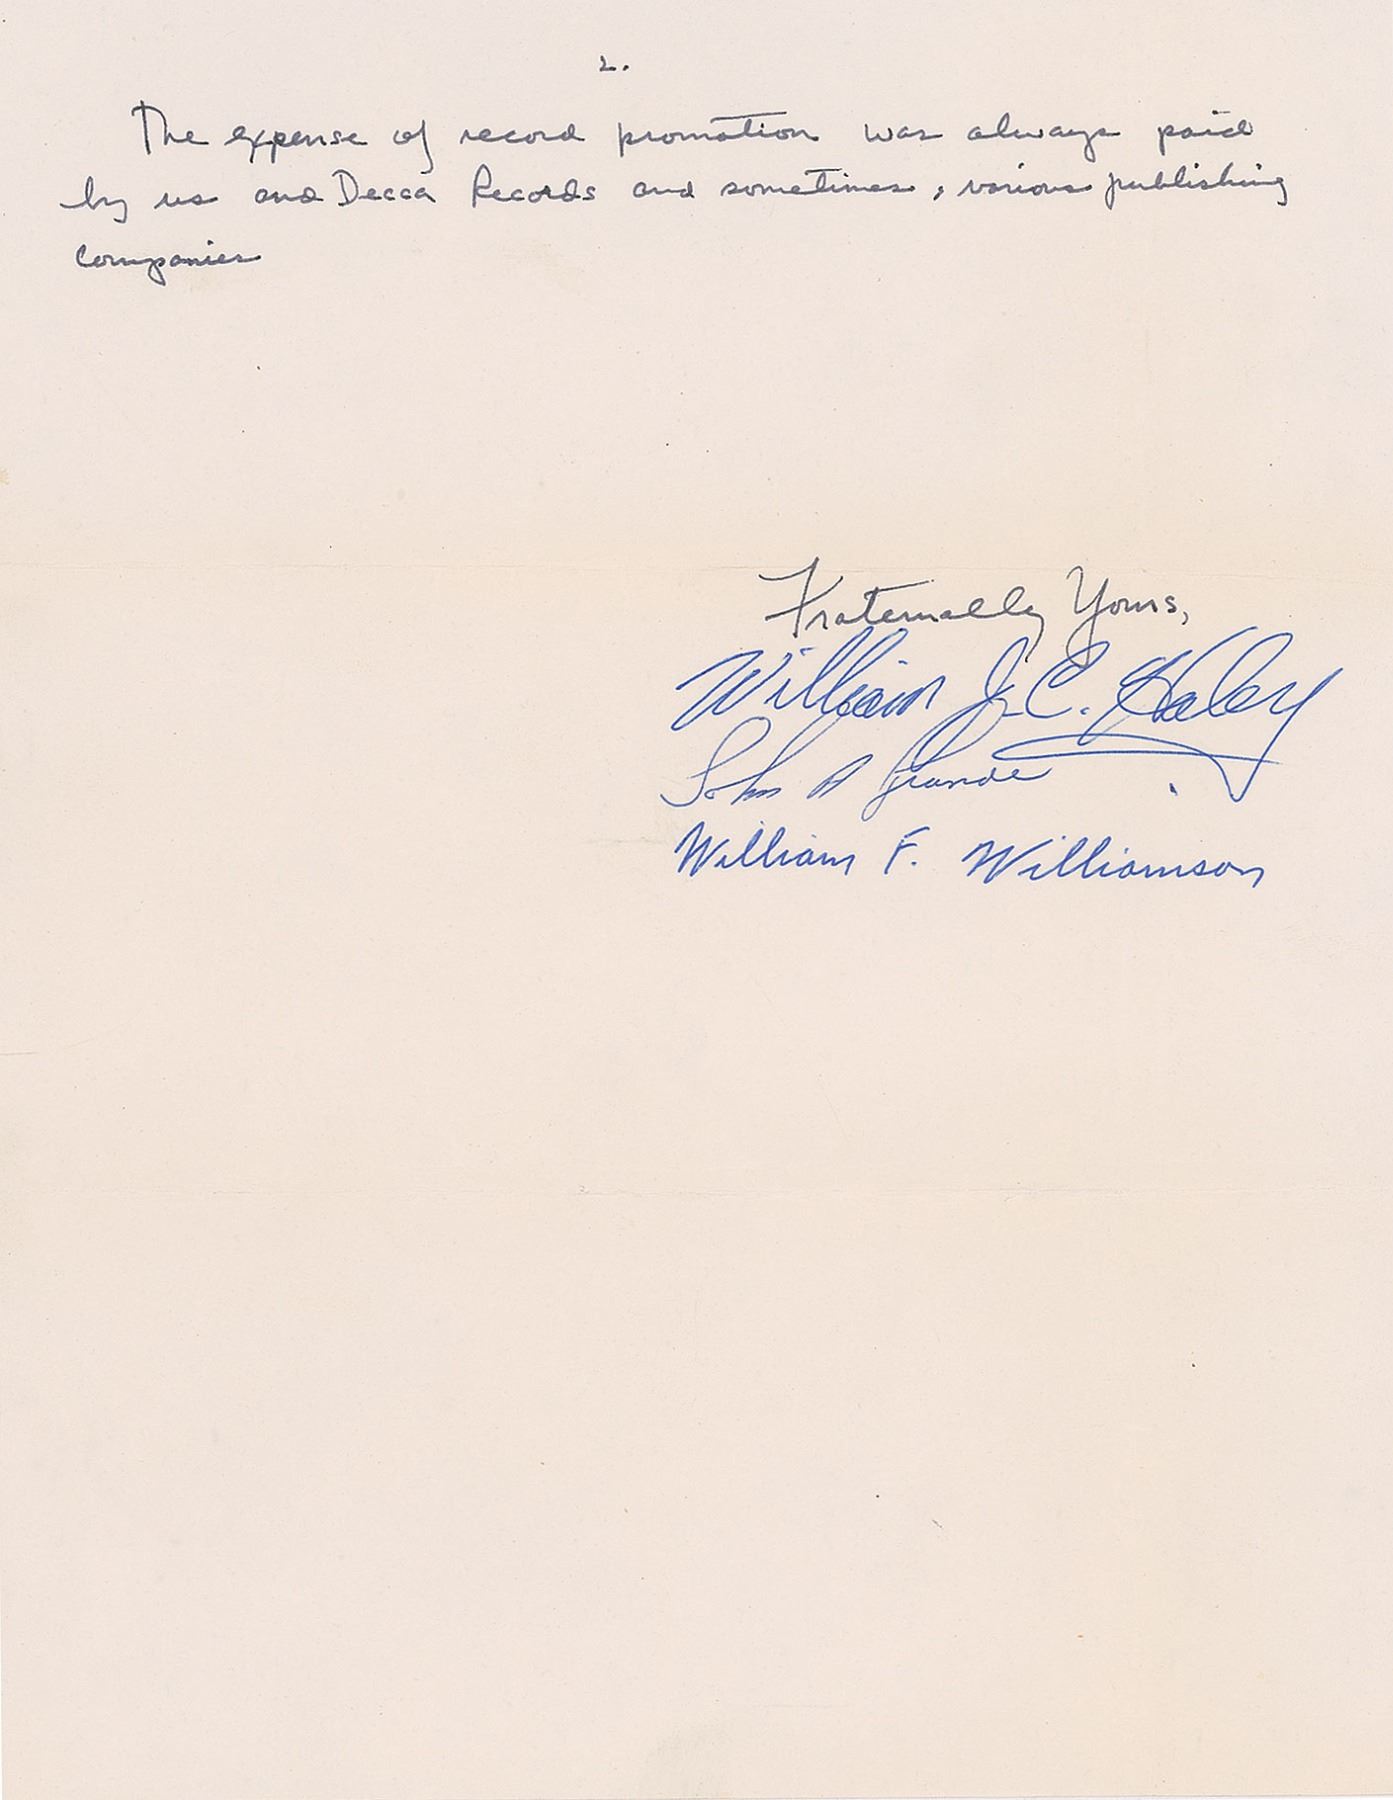 2.
The expense of record promotion was always paid
by us and Decca Records and sometimes, various publishing
companies
Fraternally Yours,
William J. C. Haley
John A Grande
William F. Williamson